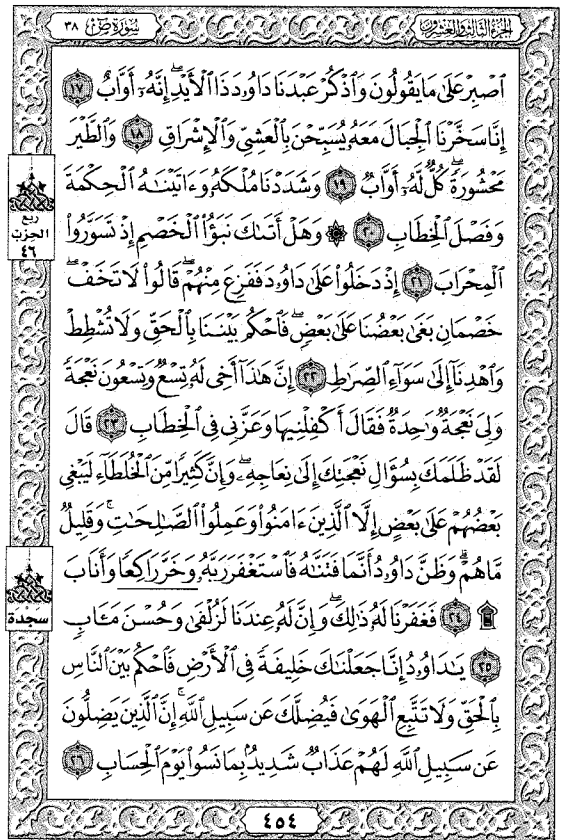 الجزء الثالث والعشرون
سورة ص ٣٨
ٱصۡبِرۡ عَلَىٰ مَا يَقُولُونَ وَٱذۡكُرۡ عَبۡدَنَا دَاوُۥدَ ذَا ٱلۡأَيۡدِۖ إِنَّهُۥٓ أَوَّابٌ ١٧
إِنَّا سَخَّرۡنَا ٱلۡجِبَالَ مَعَهُۥ يُسَبِّحۡنَ بِٱلۡعَشِيِّ وَٱلۡإِشۡرَاقِ ١٨ وَٱلطَّيۡرَ
مَحۡشُورَةٗۖ كُلّٞ لَّهُۥٓ أَوَّابٞ ١٩ وَشَدَدۡنَا مُلۡكَهُۥ وَءَاتَيۡنَٰهُ ٱلۡحِكۡمَةَ
وَفَصۡلَ ٱلۡخِطَابِ ٢٠ ۞ وَهَلۡ أَتَىٰكَ نَبَؤُاْ ٱلۡخَصۡمِ إِذۡ تَسَوَّرُواْ
ٱلۡمِحۡرَابَ ٢١ إِذۡ دَخَلُواْ عَلَىٰ دَاوُۥدَ فَفَزِعَ مِنۡهُمۡۖ قَالُواْ لَا تَخَفۡۖ
خَصۡمَانِ بَغَىٰ بَعۡضُنَا عَلَىٰ بَعۡضٖ فَٱحۡكُم بَيۡنَنَا بِٱلۡحَقِّ وَلَا تُشۡطِطۡ
وَٱهۡدِنَآ إِلَىٰ سَوَآءِ ٱلصِّرَٰطِ ٢٢ إِنَّ هَٰذَآ أَخِي لَهُۥ تِسۡعٞ وَتِسۡعُونَ نَعۡجَةٗ
وَلِيَ نَعۡجَةٞ وَٰحِدَةٞ فَقَالَ أَكۡفِلۡنِيهَا وَعَزَّنِي فِي ٱلۡخِطَابِ ٢٣ قَالَ
لَقَدۡ ظَلَمَكَ بِسُؤَالِ نَعۡجَتِكَ إِلَىٰ نِعَاجِهِۦۖ وَإِنَّ كَثِيرٗا مِّنَ ٱلۡخُلَطَآءِ لَيَبۡغِي
بَعۡضُهُمۡ عَلَىٰ بَعۡضٍ إِلَّا ٱلَّذِينَ ءَامَنُواْ وَعَمِلُواْ ٱلصَّٰلِحَٰتِ وَقَلِيلٞ
مَّا هُمۡۗ وَظَنَّ دَاوُۥدُ أَنَّمَا فَتَنَّٰهُ فَٱسۡتَغۡفَرَ رَبَّهُۥ وَخَرَّۤ رَاكِعٗاۤ وَأَنَابَ
۩ ٢٤ فَغَفَرۡنَا لَهُۥ ذَٰلِكَۖ وَإِنَّ لَهُۥ عِندَنَا لَزُلۡفَىٰ وَحُسۡنَ مَـَٔابٖ
٢٥ يَٰدَاوُۥدُ إِنَّا جَعَلۡنَٰكَ خَلِيفَةٗ فِي ٱلۡأَرۡضِ فَٱحۡكُم بَيۡنَ ٱلنَّاسِ
بِٱلۡحَقِّ وَلَا تَتَّبِعِ ٱلۡهَوَىٰ فَيُضِلَّكَ عَن سَبِيلِ ٱللَّهِۚ إِنَّ ٱلَّذِينَ يَضِلُّونَ
عَن سَبِيلِ ٱللَّهِ لَهُمۡ عَذَابٞ شَدِيدُۢ بِمَا نَسُواْ يَوۡمَ ٱلۡحِسَابِ ٢٦
ربع
الحزب
٤٦
سجدة
٤٥٤